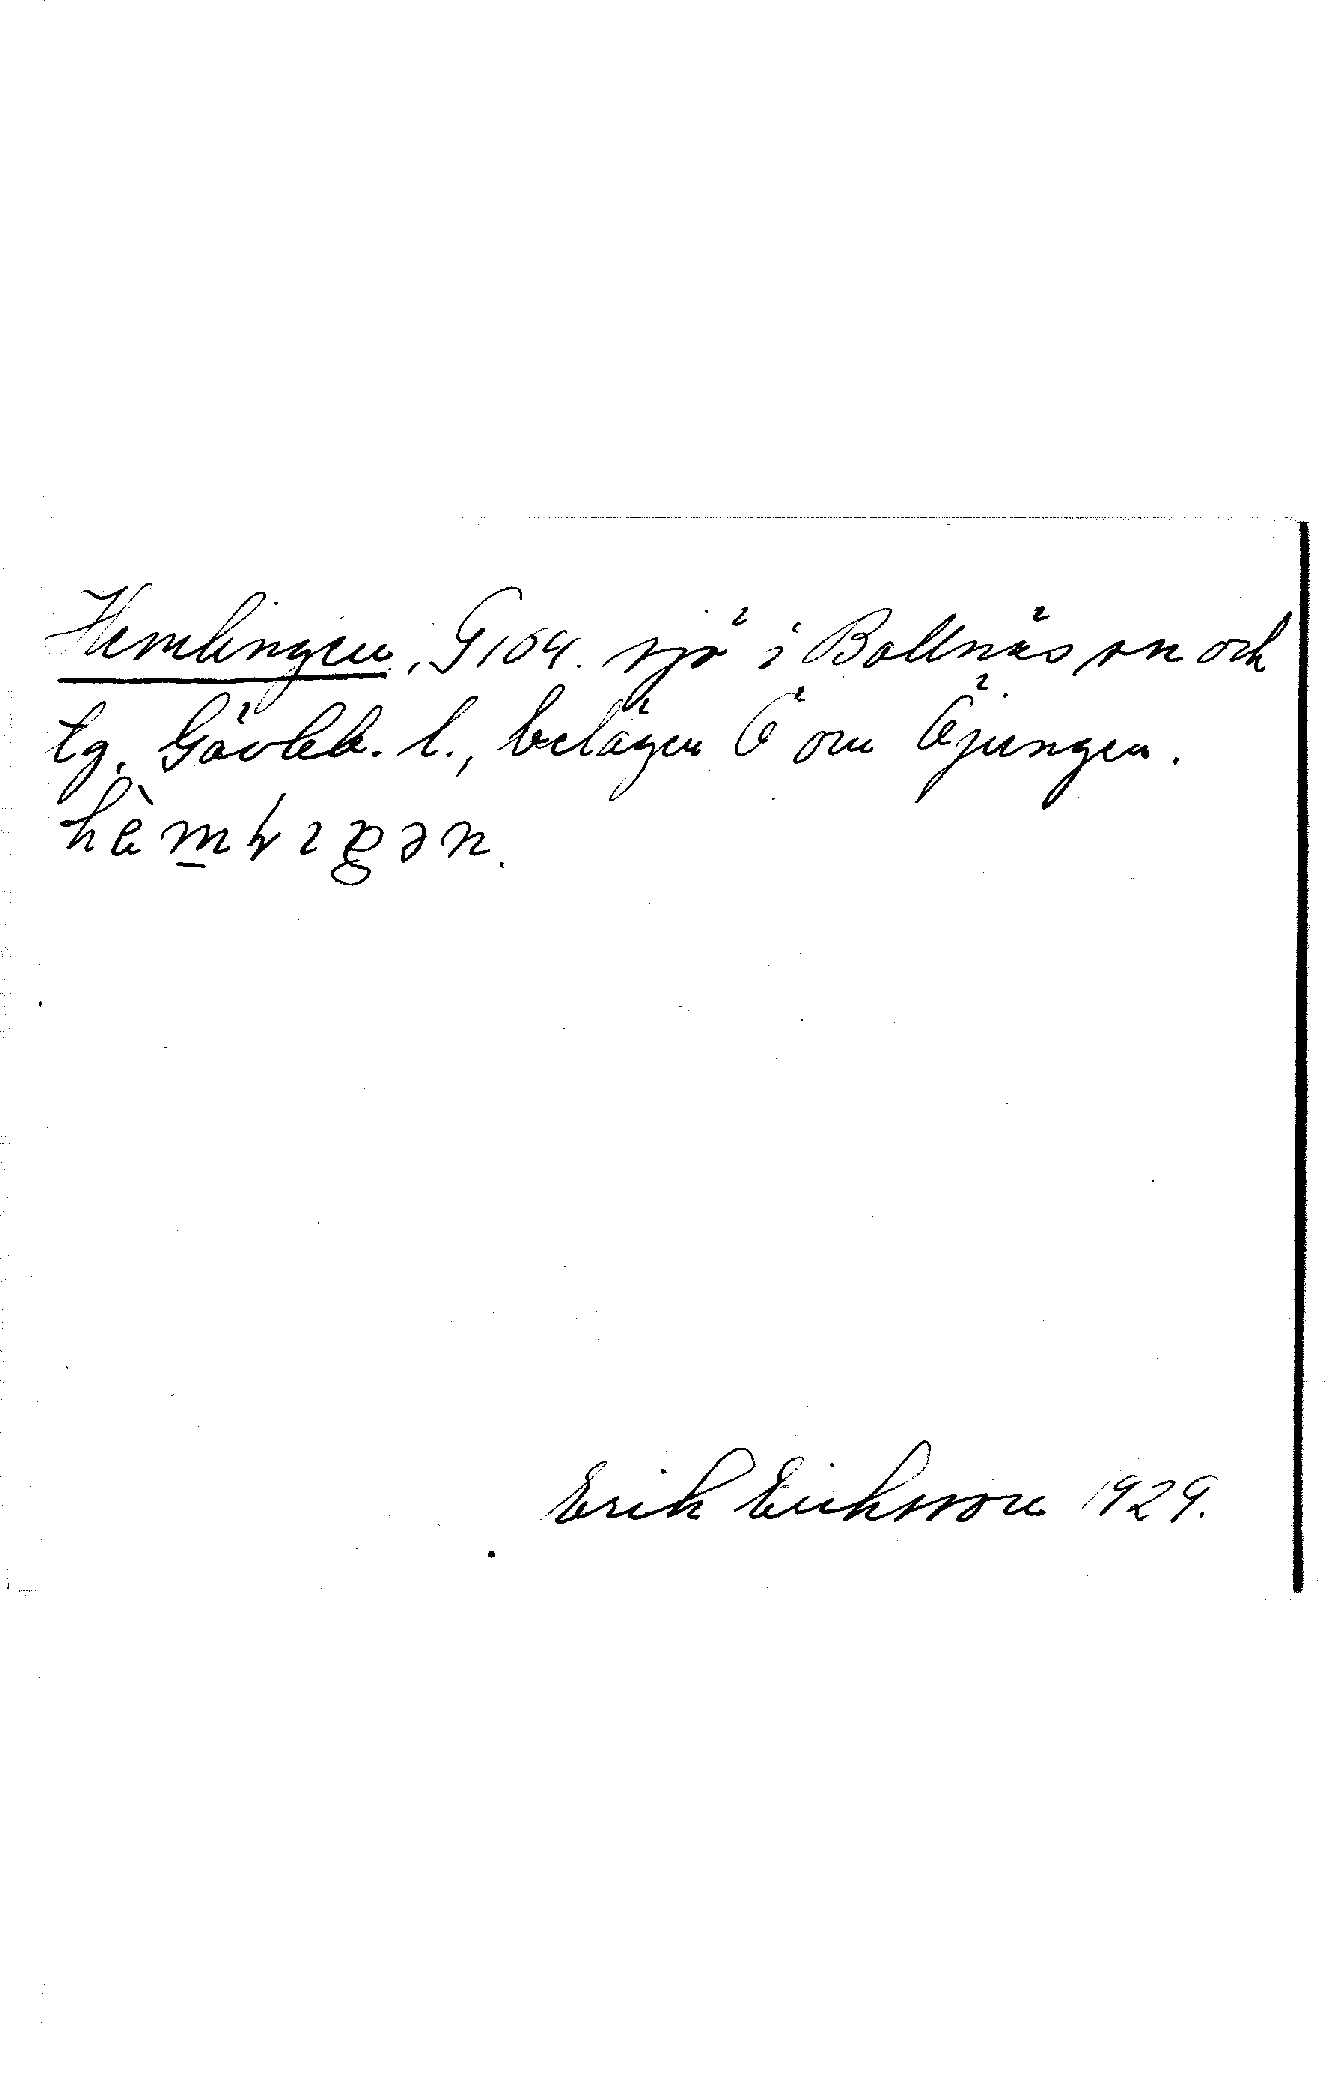 Hemlingen, G104. sjö i Bollnäs sn och
tg, Gävleb. l., belägen Ö om Öjungen.
Erik Eriksson 1929.